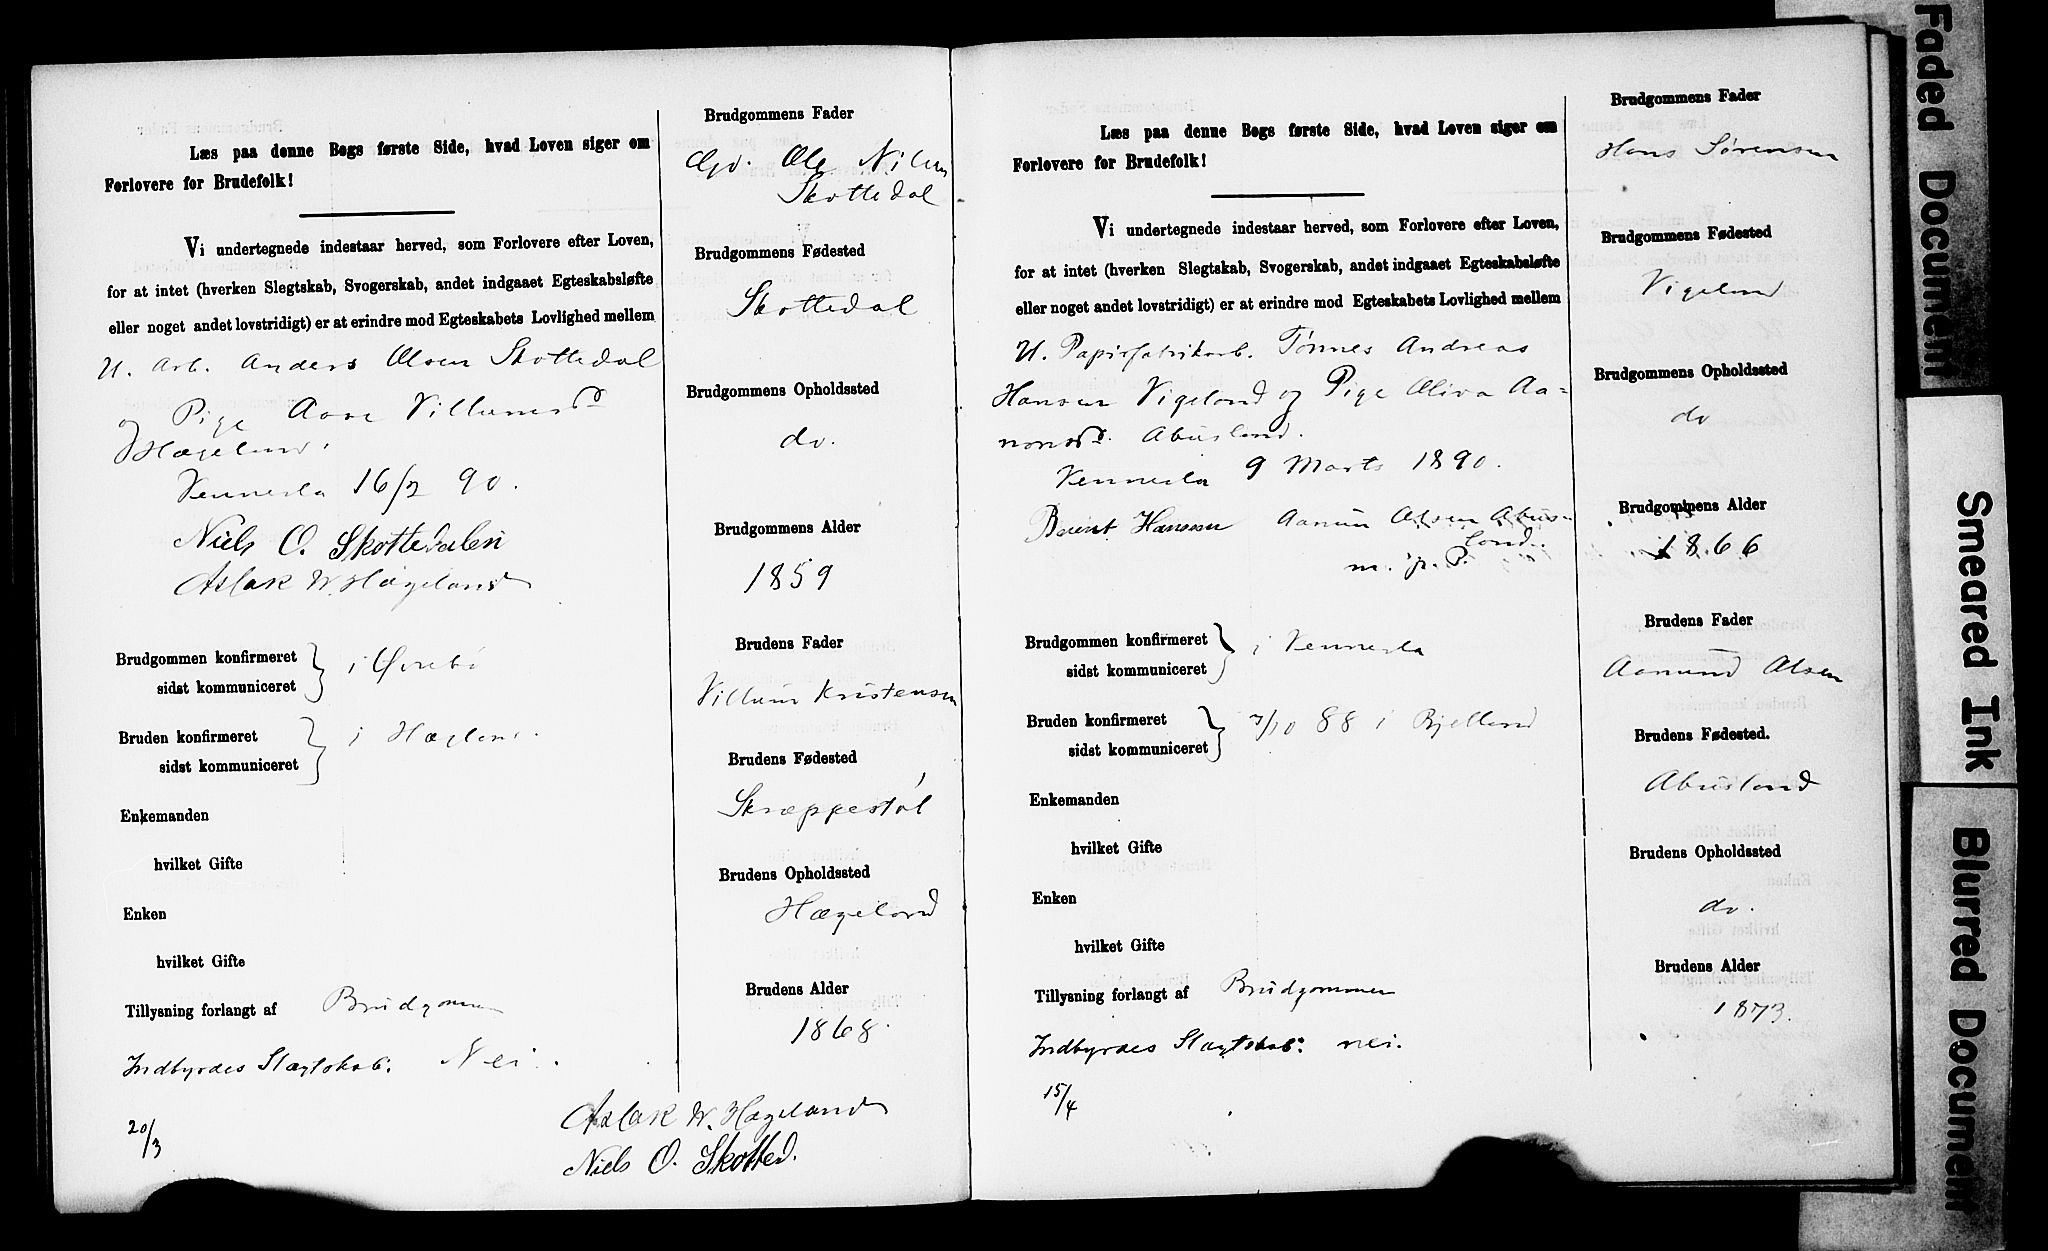 Læs paa denne Bogs første Side, hvad Loven siger om
Forlovere for Brudefolk!
Vi undertegnede indestaar herved, som Forlovere efter Loven,
for at intet (hverken Slegtskab, Svogerskab, andet indgaaet Egteskabsløfte
eller noget andet lovstridigt) er at erindre mod Egteskabets Lovlighed mellem
U. Arb. Anders Olsen Skottedal
og Pige Aase Villumsd
Hægeland.
Vennesla 16/2 90.
Niels O. Skottedalen
Aslak W. Hægeland
Brudgommen konfirmeret
sidst kommuniceret
i Øvrebø
Bruden konfirmeret
sidst kommuniceret
i Hægeland.
Enkemanden
hvilket Gifte
Enken
hvilket Gifte
Tillysning forlangt af Brudgommen
Indbyrdes Slægtskab: Nei.
20/3
Aslak W. Hægeland
Niels O. Skotted.
Brudgommens Fader
Ole Nilsen
Skottedal
Brudgommens Fødested
Skottedal
Brudgommens Opholdssted
do.
Brudgommens Alder
1859
Brudens Fader
Villum Kristensen
Brudens Fødested
Skræppestøl
Brudens Opholdssted
Hægeland
Brudens Alder
1868.
Læs paa denne Bogs første Side, hvad Loven siger om
Forlovere for Brudefolk!
Vi undertegnede indestaar herved, som Forlovere efter Loven,
for at intet (hverken Slegtskab, Svogerskab, andet indgaaet Egteskabsløfte
eller noget andet lovstridigt) er at erindre mod Egteskabets Lovlighed mellem
U. Papirfabrikarb. Tønnes Andreas
Hansen Vigeland og Pige Oliva Aa=
nonsd. Abusland.
Vennesla 9 Marts 1890.
Berint Hansen Aanun Olsen Abus=
land.
m. p. P.
Brudgommen konfirmeret
sidst kommuniceret
i Vennesla
Bruden konfirmeret
sidst kommuniceret
7/10 88 i Bjelland
Enkemanden
hvilket Gifte
Enken
hvilket Gifte
Tillysning forlangt af Brudgommen
Indbyrdes Slægtskab: nei.
15/4
Brudgommens Fader
Hans Sørensen
Brudgommens Fødested
Vigeland
Brudgommens Opholdssted
do
Brudgommens Alder
1866
Brudens Fader
Aanund Olsen
Brudens Fødested.
Abusland
Brudens Opholdssted
do.
Brudens Alder
1873.
Faded Document
Smeared Ink
Blurred Document